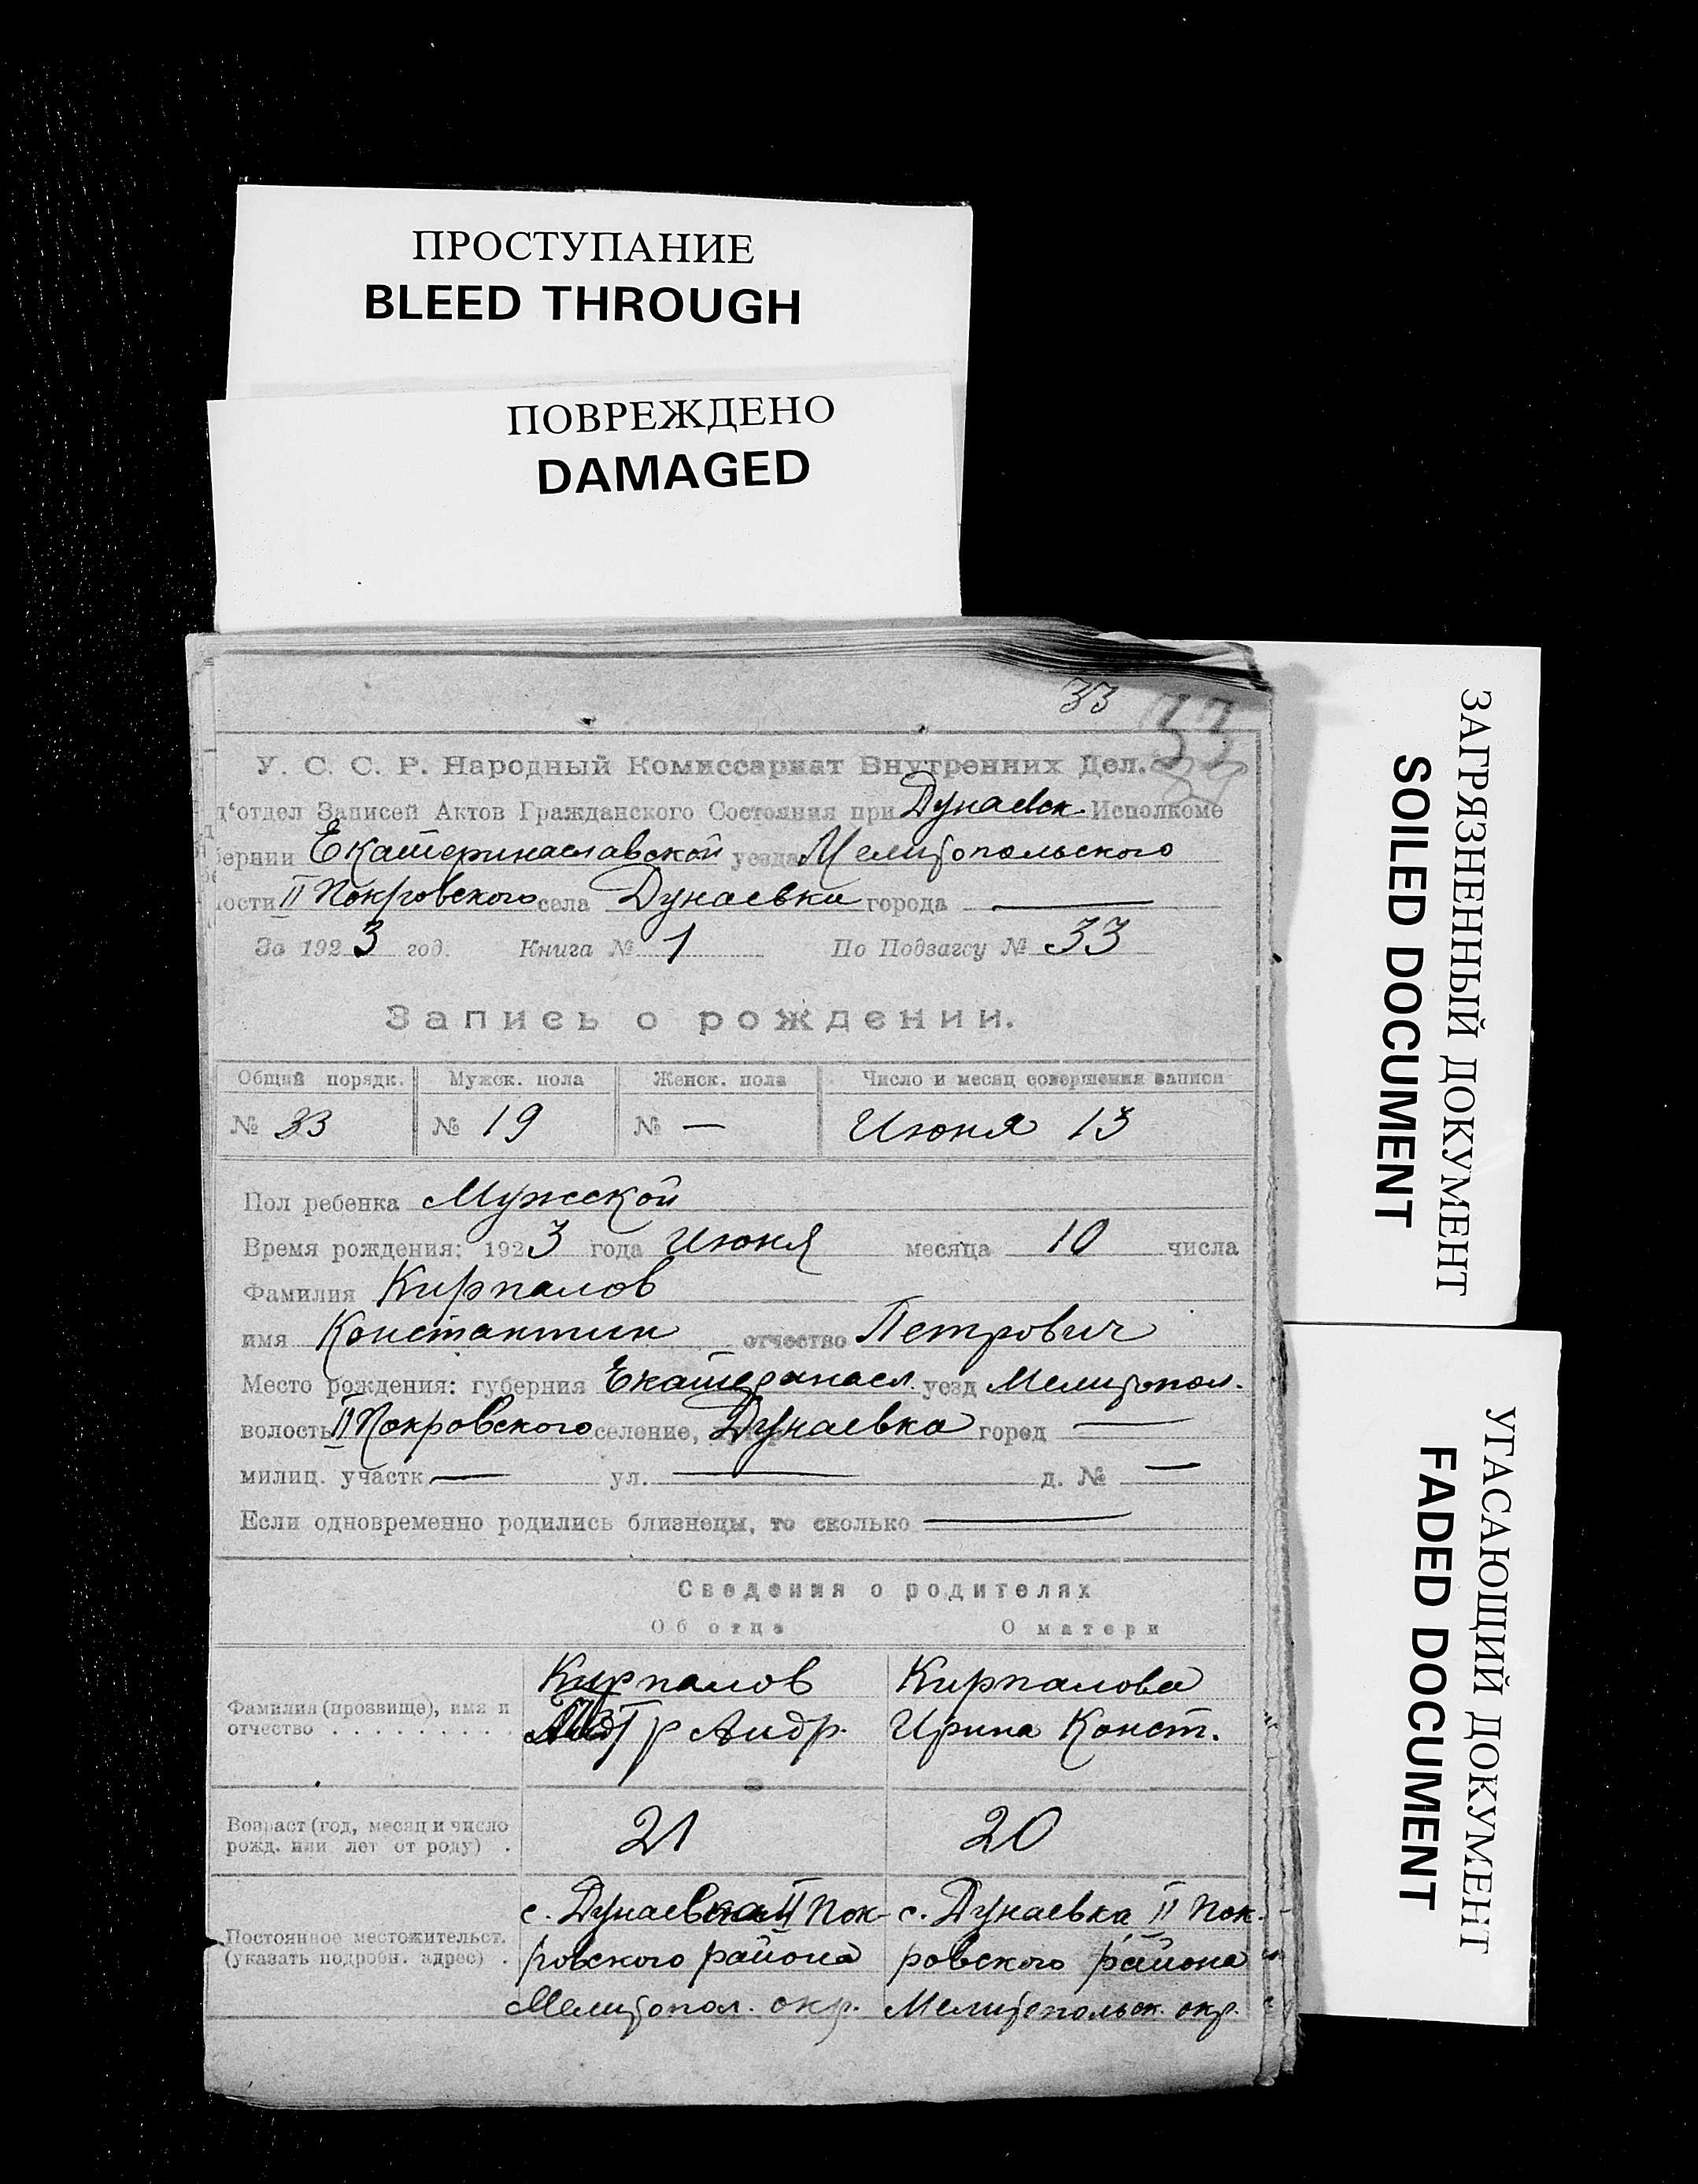 ПРОСТУПАНИЕ
BLEED THROUGH
ПОВРЕЖДЕНО
DAMAGED
ЗАГРЯЗНЕННЫЙ ДОКУМЕНТ
SOILED DOCUMENT
УГАСАЮЩИЙ ДОКУМЕНТ
FADED DOCUMENT
33 33
У. С. С. Р. Народный Комиссариат Внутренних Дел.
д'отдел Записей Актов Гражданского Состояния при Дунаевск. Исполкоме
бернии Екатеринаславской уезда Мелитопольского
лости II Покровского села Дунаевки города —
За 1923 год. Книга № 1 По Подзагсу № 33
Запись о рождении.
Общий порядк. Мужск. пола Женск. пола Число и месяц совершения записи
№ 33 № 19 № — Июня 13
Пол ребенка Мужской
Время рождения: 1923 года Июня месяца 10 числа
Фамилия Кирпалов
имя Константин отчество Петрович
Место рождения: губерния Екатеринасл. уезд Мелитопол.
волость II Покровского селение, Дунаевка город —
милиц. участк — ул. — д. № —
Если одновременно родились близнецы, то сколько —
Сведения о родителях
Об отце О матери
Фамилия (прозвище), имя и отчество . . . . . . . . . .
Кирпалов Кирпалова
Петр Андр. Ирина Конст.
Возраст (год, месяц и число рожд. или лет от роду) .
21 20
Постоянное местожительст. (указать подробн. адрес) .
с. Дунаевка II Пок- с. Дунаевка II Пок-
ровского района ровского района
Мелитопол. окр. Мелитопольск. окр.